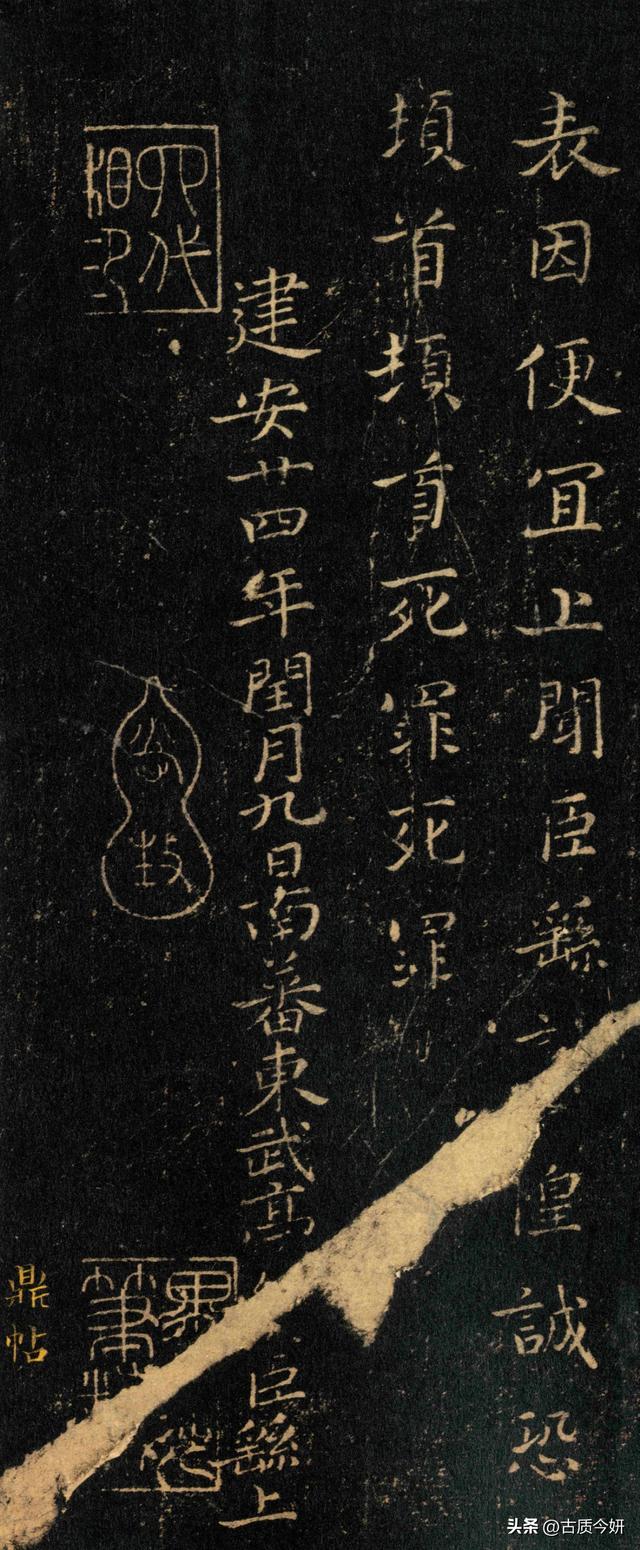 表因便冝上聞臣繇惶誠恐
頓首頓首死罪死罪
建安廿四年閏月九日南蕃東武亭臣繇上
四代相印
鼎帖
头条 @古质今妍